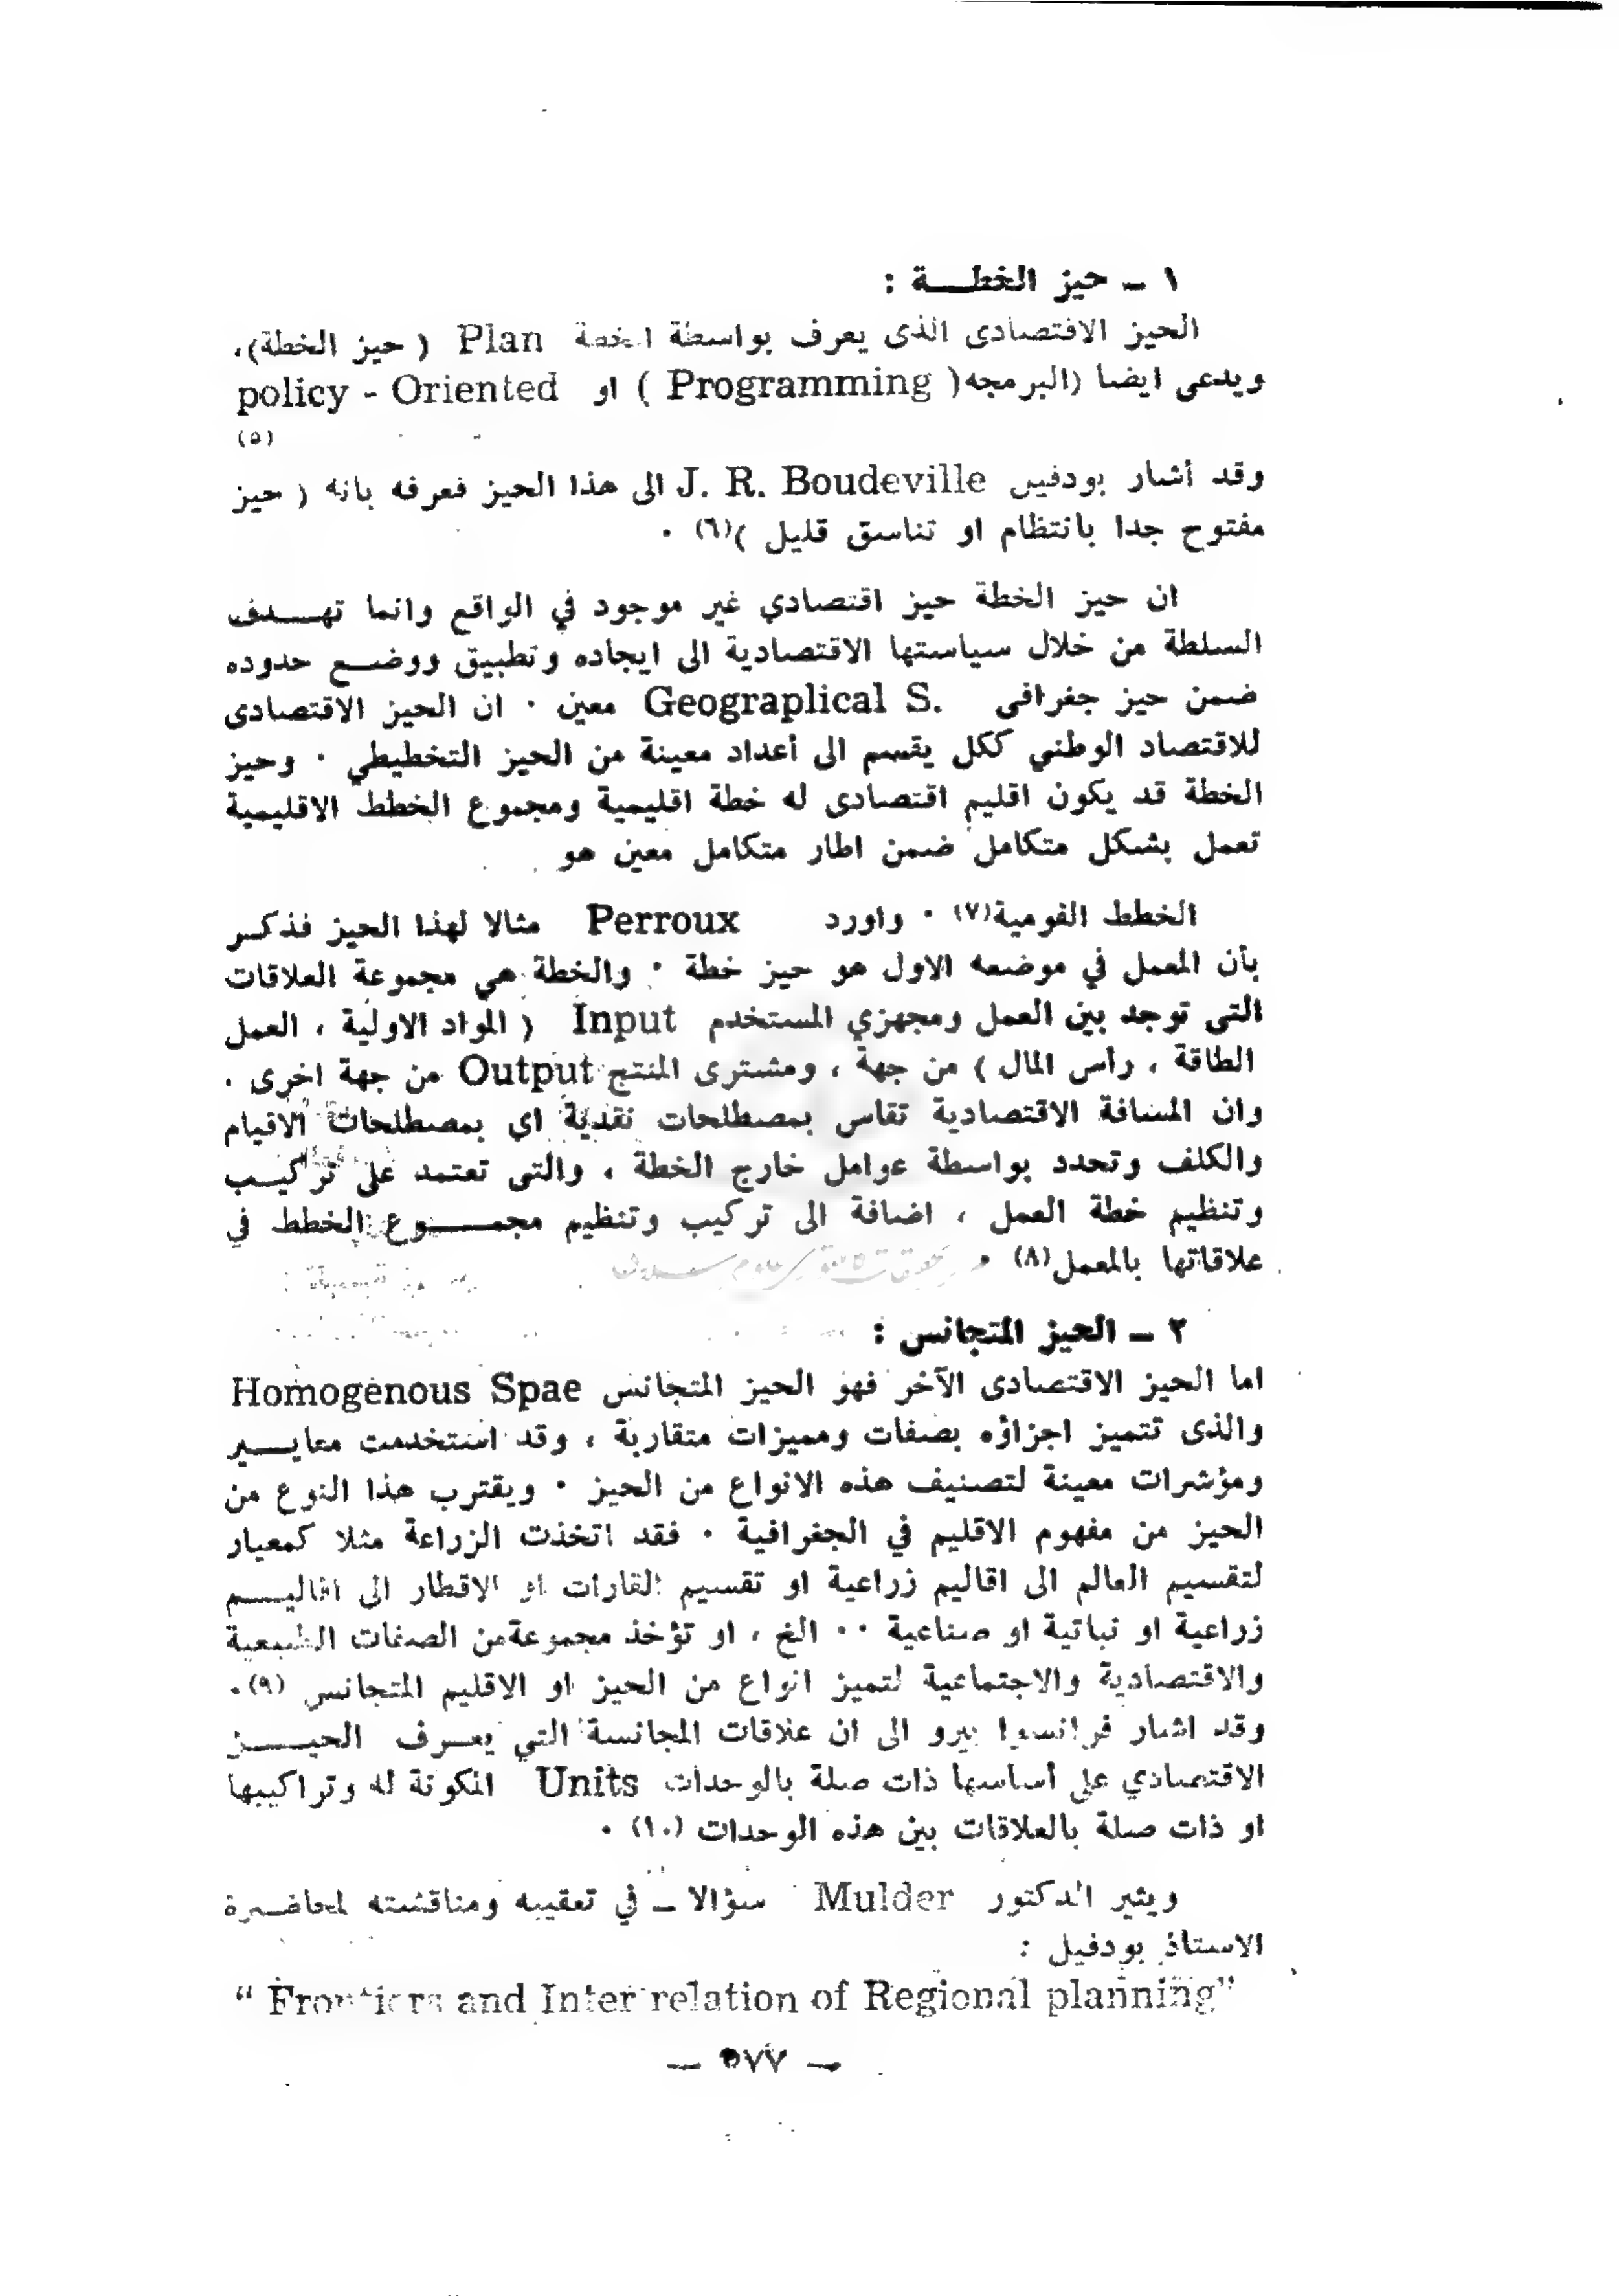 ١ ـ حيز الخطـــة :
الحيز الاقتصادى الذى يعرف بواسطة الخطة Plan ( حيز الخطة)،
ويدعى ايضا (البرمجه( Programming ) او policy - Oriented
(٥)
وقد أشار بودفيل J. R. Boudeville الى هذا الحيز فعرفه بانه ( حيز
مفتوح جدا بانتظام او تناسق قليل )(٦) ٠
ان حيز الخطة حيز اقتصادي غير موجود في الواقع وانما تهـــدف
السلطة من خلال سياستها الاقتصادية الى ايجاده وتطبيق ووضـع حدوده
ضمن حيز جغرافى Geograplical S. معين ٠ ان الحيز الاقتصادى
للاقتصاد الوطني ككل يقسم الى أعداد معينة من الحيز التخطيطي ٠ وحيز
الخطة قد يكون اقليم اقتصادى له خطة اقليمية ومجموع الخطط الاقليمية
تعمل بشكل متكامل ضمن اطار متكامل معين هو
الخطط القومية(٧) ٠ واورد Perroux مثالا لهذا الحيز فذكـر
بأن المعمل في موضعه الاول هو حيز خطة ٠ والخطة هي مجموعة العلاقات
التى توجد بين العمل ومجهزي المستخدم Input ( المواد الاولية ، العمل
الطاقة ، رأس المال ) من جهة ، ومشترى المنتج Output من جهة اخرى ٠
وان المسافة الاقتصادية تقاس بمصطلحات نقدية اي بمصطلحات الاقيام
والكلف وتحدد بواسطة عوامل خارج الخطة ، والتى تعتمد على تركيـب
وتنظيم خطة العمل ، اضافة الى تركيب وتنظيم مجمـــوع الخطط في
علاقاتها بالمعمل(٨) ٠
٢ ـ الحيز المتجانس :
اما الحيز الاقتصادى الآخر فهو الحيز المتجانس Homogenous Spae
والذى تتميز اجزاؤه بصفات ومميزات متقاربة ، وقد استخدمت معايـــير
ومؤشرات معينة لتصنيف هذه الانواع من الحيز ٠ ويقترب هذا النوع من
الحيز من مفهوم الاقليم في الجغرافية ٠ فقد اتخذت الزراعة مثلا كمعيار
لتقسيم العالم الى اقاليم زراعية او تقسيم القارات او الاقطار الى اقاليـــم
زراعية او نباتية او صناعية ٠٠ الخ ، او تؤخذ مجموعةمن الصفات الطبيعية
والاقتصادية والاجتماعية لتميز انواع من الحيز او الاقليم المتجانس (٩)٠
وقد اشار فرانسوا بيرو الى ان علاقات المجانسة التي يعـرف الحيـــز
الاقتصادي على أساسها ذات صلة بالوحدات Units المكونة له وتراكيبها
او ذات صلة بالعلاقات بين هذه الوحدات (١٠) ٠
ويثير الدكتور Mulder سؤالا ـ في تعقيبه ومناقشته لمحاضـرة
الاستاذ بودفيل :
“ Frontiers and Inter relation of Regional planning”
— ٥٧٧ —